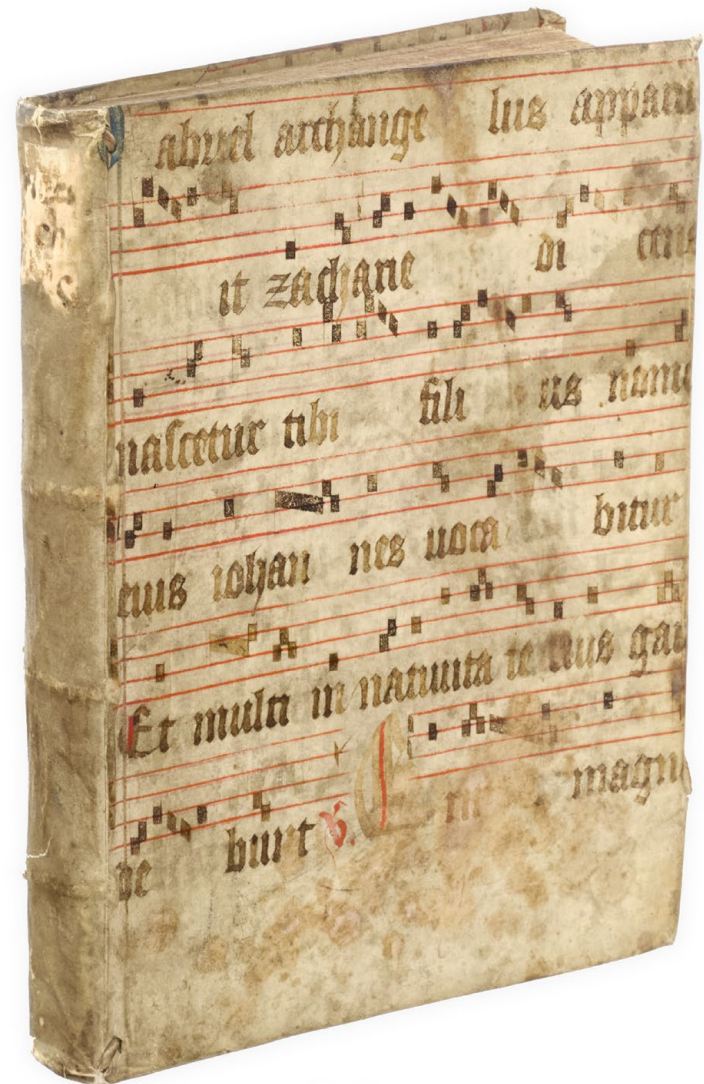 abriel archange lus apparu
it zacharie di cens
nascetur tibi fili us nome
eius iohan nes uoca bitur
Et multi in natiuita te eius gau
de bunt V. E nı magn